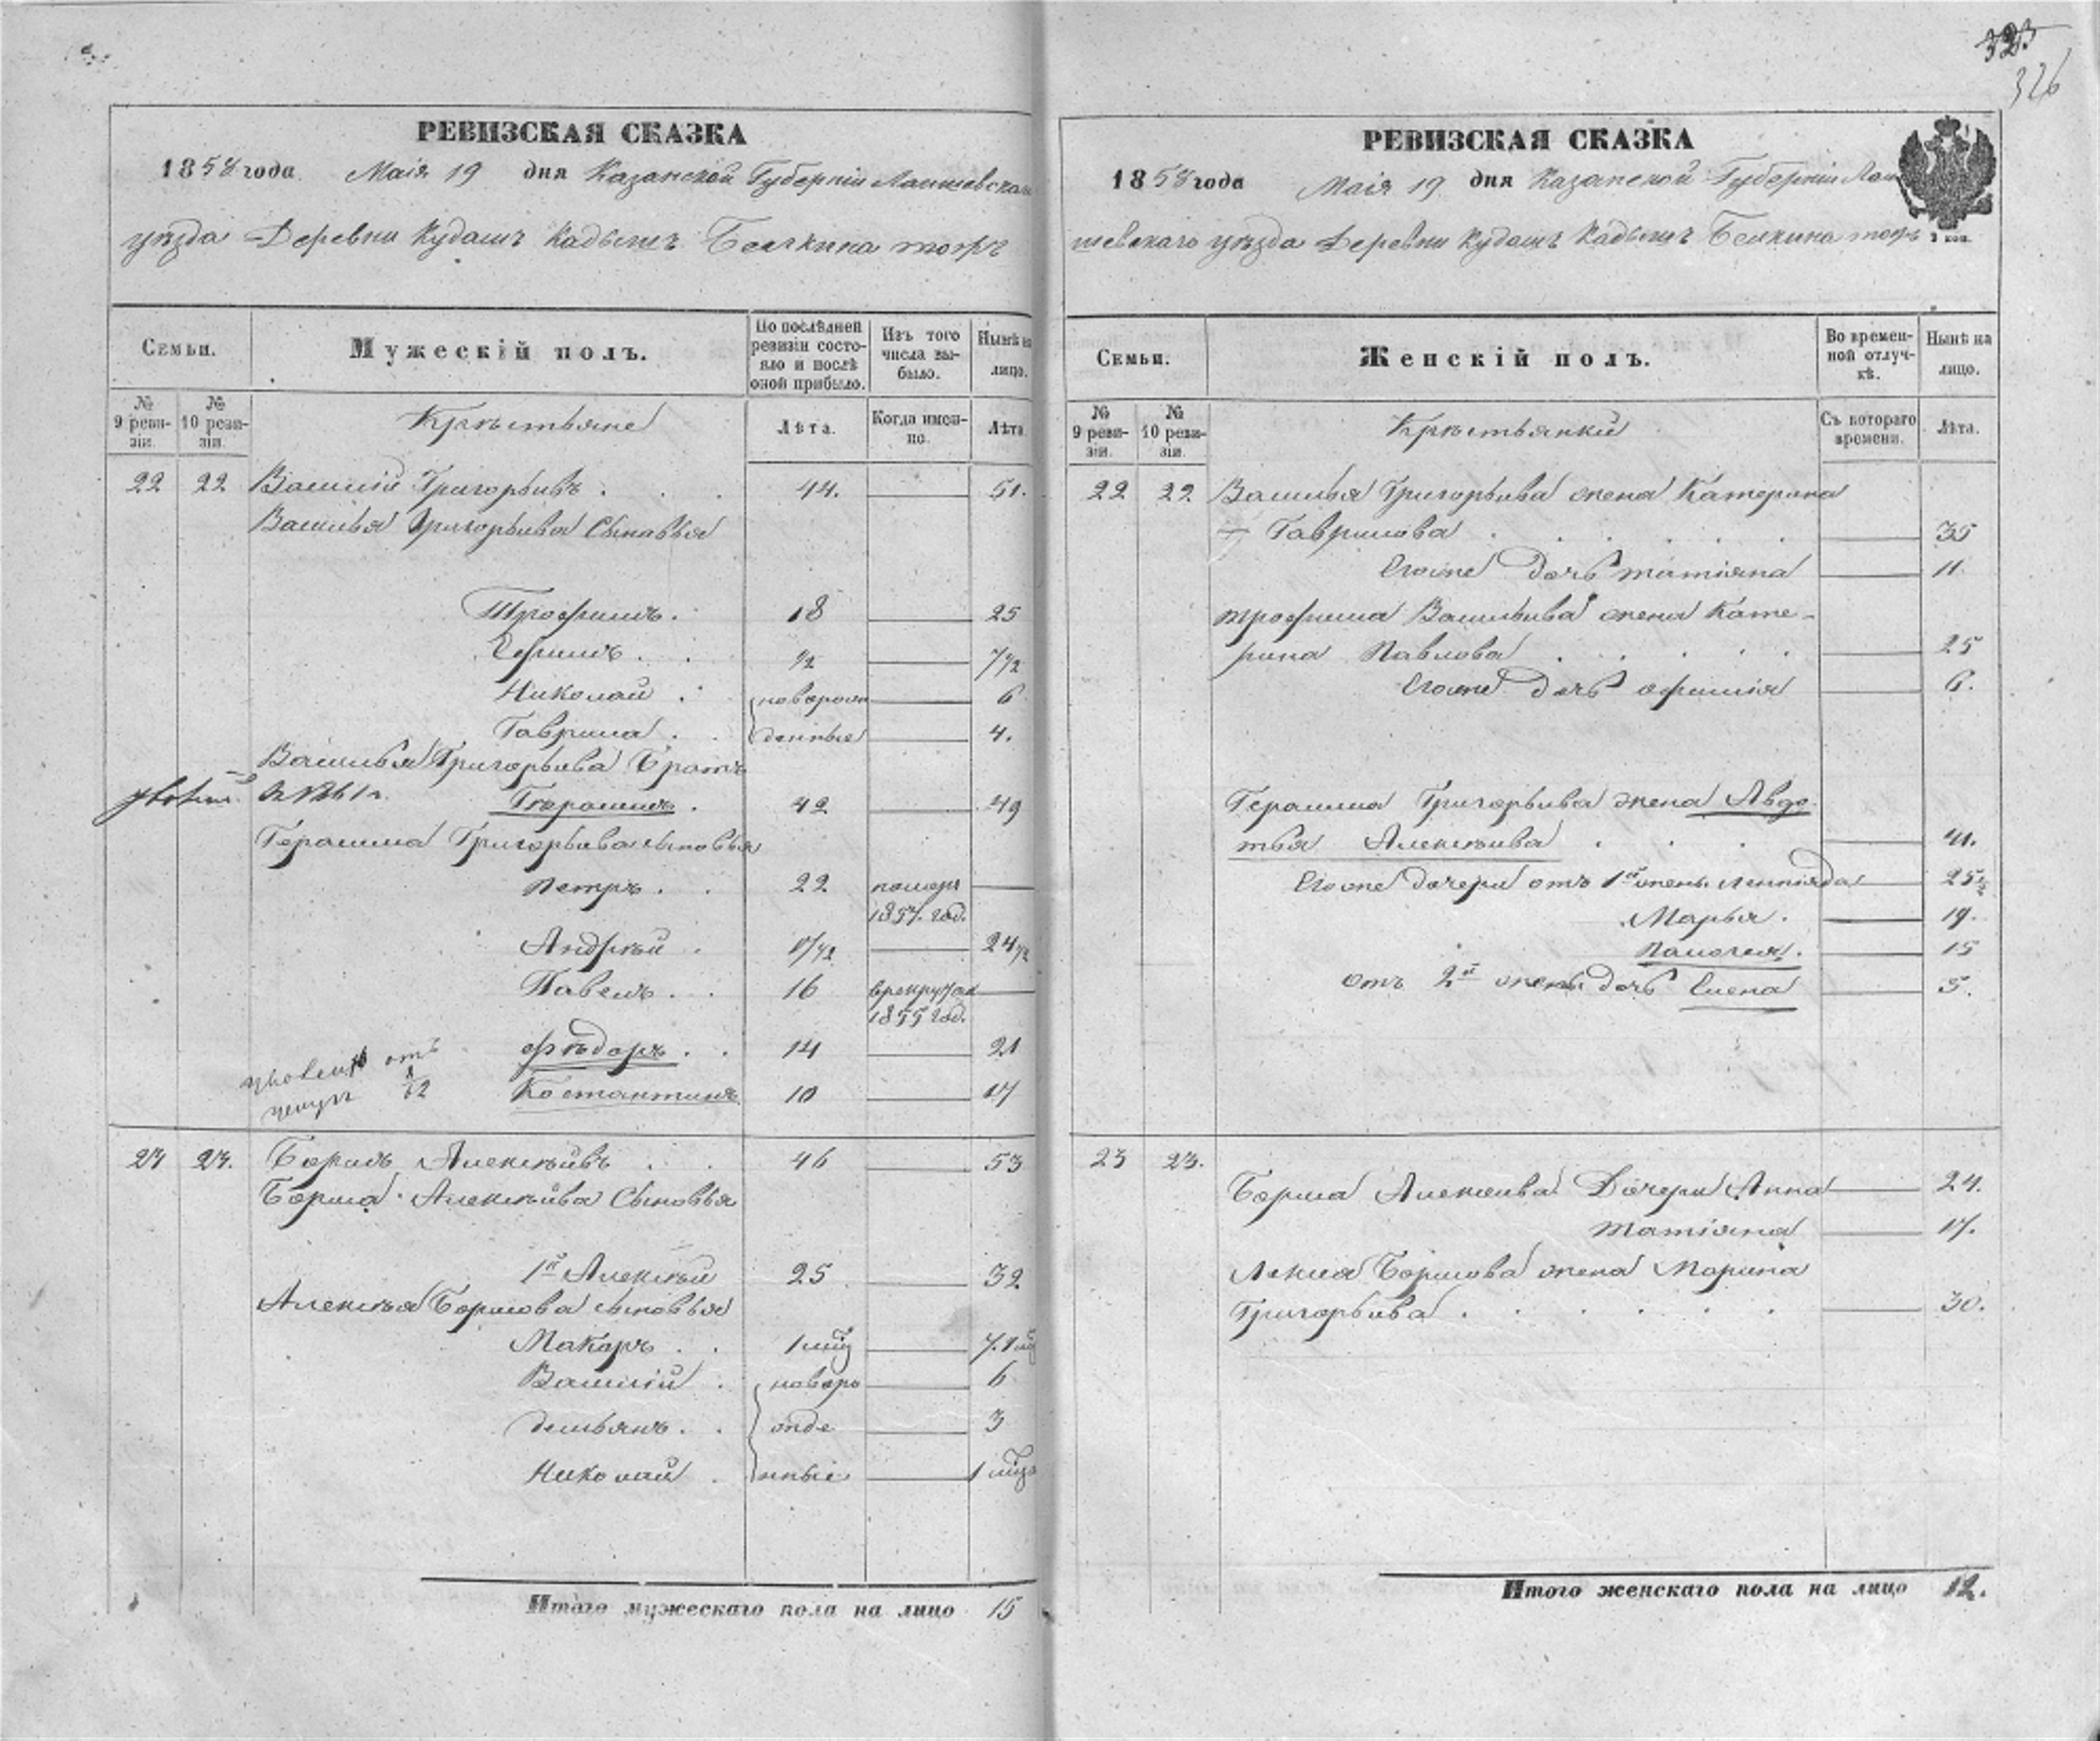 323
326
РЕВИЗСКАЯ СКАЗКА
1858 года Маія 19 дня Казанской Губерніи Лаишевскаго
уѣзда Деревни Кудашъ Кадышъ Белкина тожъ
Семьи. Мужескій полъ. По послѣдней ревизіи состояло и послѣ оной прибыло. Изъ того числа выбыло. Нынѣ на лицо.
№ 9 ревизіи. № 10 ревизіи. Крѣстьяне Лѣта. Когда именно. Лѣта
22 22 Василій Григорьивъ . . . 44. 51.
Василья Григорьива Сыновья
Трофимъ. 18 25
Ефимъ . . 1/2 7 1/2
Николай . новорож 6
Гаврила . денные 4.
Василья Григорьива Братъ
Герасимъ . 42 49
Герасима Григорьива сыновья
Петръ . . 22 померъ
1857. год.
Андрѣй . 17 1/2 24 1/2
Павелъ . . 16 врекруты
1855 год.
Ѳѣдоръ . . 14 21
отъ
Костантинъ 10 17
23 23. Борисъ Алексѣивъ . . 46 53
Бориса Алексѣива Сыновья
1й Алексѣй 25 32
Алексѣя Борисова сыновья
Макаръ . . 1 мѣц 7. 1 мц
Василій . новоро 6
Демьянъ . . жде 3
Николай . нные 1 мѣц
Итого мужескаго пола на лицо 15
РЕВИЗСКАЯ СКАЗКА
1858 года Маія 19 дня Казанской Губерніи Лаи
шевскаго уѣзда Деревни Кудашъ Кадышъ Белкина тожъ
Семьи. Женскій полъ. Во временной отлучкѣ. Нынѣ на лицо.
№ 9 ревизіи. № 10 ревизіи. Крѣстьянки Съ котораго времени. Лѣта.
22 22 Василья Григорьива жена Катерина
Гаврилова . . . . . 35
Егоже дочь татіяна 11
трофима Васильива жена Кате-
рина Павлова . . . . . 25
Егоже дочь афимія 6.
Герасима Григорьива жена Авдо
тья Алексѣива . . . 41.
Егоже дочери отъ 1й жены 25 1/2
Марья . 19.
Палогея . 15
отъ 2й жены дочь Елена 5.
23 23.
Бориса Алексѣива Дочери Анна 24.
татіяна 17.
Алексѣя Борисова жена Марина
Григорьива . . . . . . 30.
Итого женскаго пола на лицо 12.